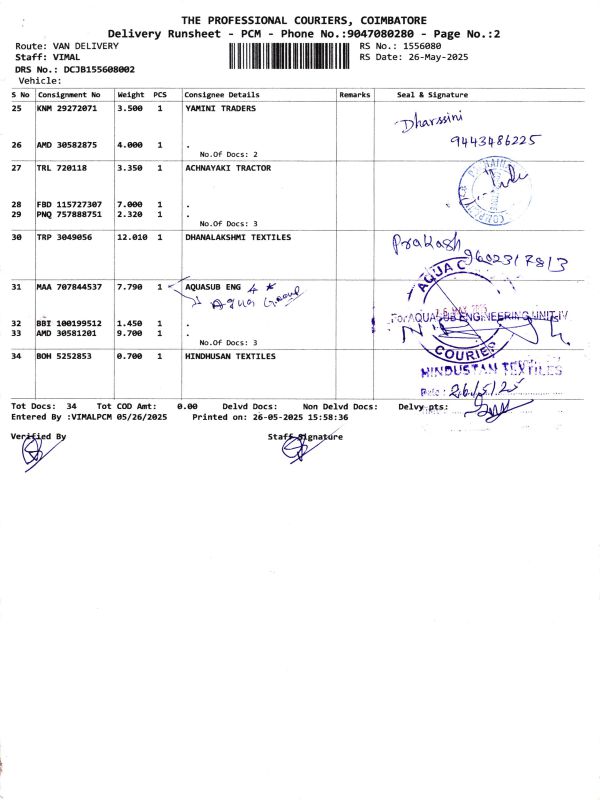 THE PROFESSIONAL COURIERS, COIMBATORE
Delivery Runsheet - PCM - Phone No.:9047080280 - Page No.:2
Route: VAN DELIVERY RS No.: 1556080
Staff: VIMAL RS Date: 26-May-2025
DRS No.: DCJB155608002
Vehicle:
S No Consignment No Weight PCS Consignee Details Remarks Seal & Signature
25 KNM 29272071 3.500 1 YAMINI TRADERS
Dharssini
26 AMD 30582875 4.000 1 . 9443486225
No.Of Docs: 2
27 TRL 720118 3.350 1 ACHNAYAKI TRACTOR
28 FBD 115727307 7.000 1 .
29 PNQ 757888751 2.320 1 .
No.Of Docs: 3
30 TRP 3049056 12.010 1 DHANALAKSHMI TEXTILES Prakash
AQUA
31 MAA 707844537 7.790 1 AQUASUB ENG 4 *
1 Aqua Group
For AQUASUB ENGINEERING UNIT-IV
32 BBI 100199512 1.450 1 .
33 AMD 30581201 9.700 1 .
No.Of Docs: 3
COURIER
34 BOH 5252853 0.700 1 HINDHUSAN TEXTILES
HINDUSTAN TEXTILES
Date : 26/5/25
Tot Docs: 34 Tot COD Amt: 0.00 Delvd Docs: Non Delvd Docs: Delvy pts:
Entered By :VIMALPCM 05/26/2025 Printed on: 26-05-2025 15:58:36
Verified By Staff Signature